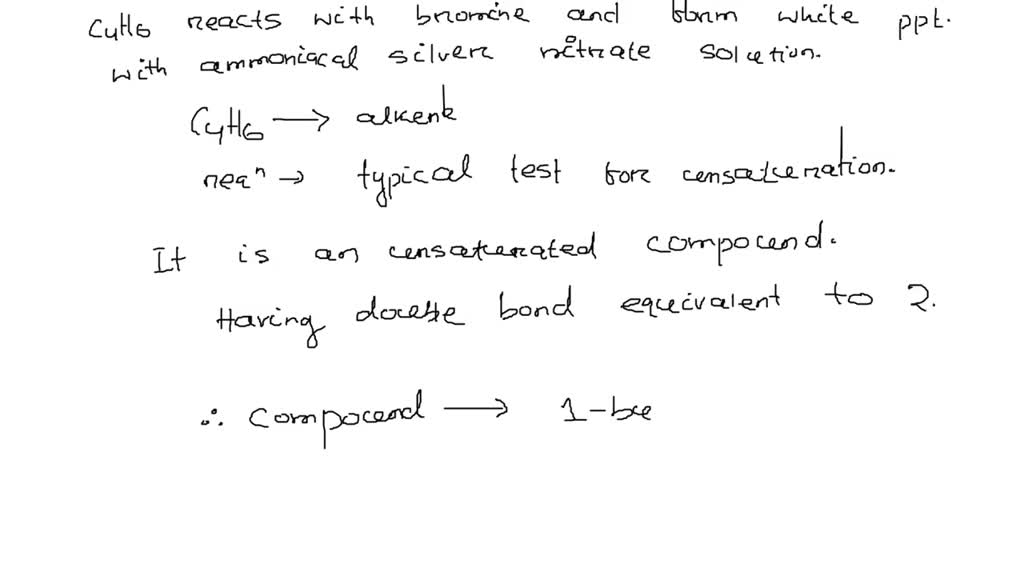 C4H6 reacts with bromine and form white ppt.
with ammoniacal silver nitrate solution.
C4H6 → alkene
reaⁿ → typical test for unsaturation.
It is an unsaturated compound.
Having double bond equivalent to 2.
∴ Compound → 1-bu